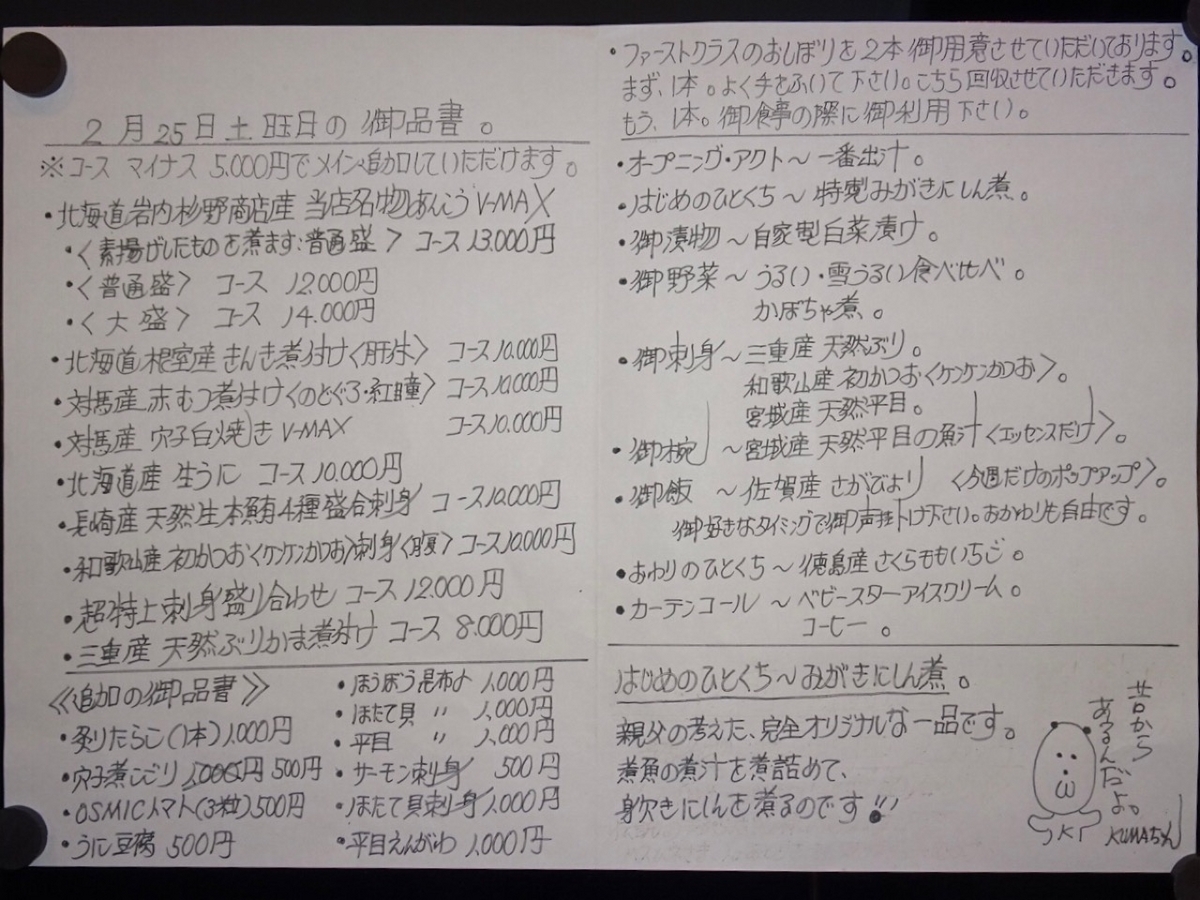 2月25日土曜日の御品書。
※コース マイナス 5.000円でメイン追加していただけます。
・北海道岩内杉野商店産 当店名物あんこうV-MAX
・〈素揚げしたものを煮ます:普通盛〉 コース 13.000円
・〈普通盛〉 コース 12000円
・〈大盛〉 コース 14.000円
・北海道根室産 きんき煮付け〈肝付〉 コース10.000円
・対馬産 赤むつ煮付け〈のどぐろ・紅瞳〉 コース10.000円
・対馬産 穴子白焼き V-MAX コース10.000円
・北海道産 生うに コース 10.000円
・長崎産 天然生本鮪4種盛合刺身 コース10.000円
・和歌山産 初かつお〈ケンケンかつお〉刺身〈腹〉 コース10.000円
・超特上刺身盛り合わせ コース 12.000円
・三重産 天然ぶりかま煮付け コース 8.000円
《追加の御品書》
・炙りたらこ(1本) 1,000円
・穴子煮こごり 1,000円 500円
・OSMICトマト(3粒) 500円
・うに豆腐 500円
・ほうぼう昆布〆 1,000円
・ほたて貝 〃 1,000円
・平目 〃 1,000円
・サーモン刺身 500円
・ほたて貝刺身 1,000円
・平目えんがわ 1,000円
・ファーストクラスのおしぼりを2本御用意させていただいております。
まず、1本。よく手をふいて下さい。こちら回収させていただきます。
もう、1本。御食事の際に御利用下さい。
・オープニング・アクト〜一番出汁。
・はじめのひとくち〜特製みがきにしん煮。
・御漬物〜自家製白菜漬け。
・御野菜〜うるい・雪うるい食べ比べ。
かぼちゃ煮。
・御刺身〜三重産 天然ぶり。
和歌山産 初かつお〈ケンケンかつお〉。
宮城産 天然平目。
・御椀 〜宮城産 天然平目の魚汁〈エッセンスだけ〉。
・御飯 〜佐賀産 さがびより 〈今週だけのポップアップ〉。
御好きなタイミングで御声掛け下さい。おかわりも自由です。
・おわりのひとくち〜徳島産さくらももいちご。
・カーテンコール 〜ベビースターアイスクリーム。
コーヒー。
はじめのひとくち〜みがきにしん煮。
親父の考えた、完全オリジナルな一品です。
煮魚の煮汁を煮詰めて、
身欠きにしんを煮るのです!!
昔から
あるんだよ。
KUMAちゃん